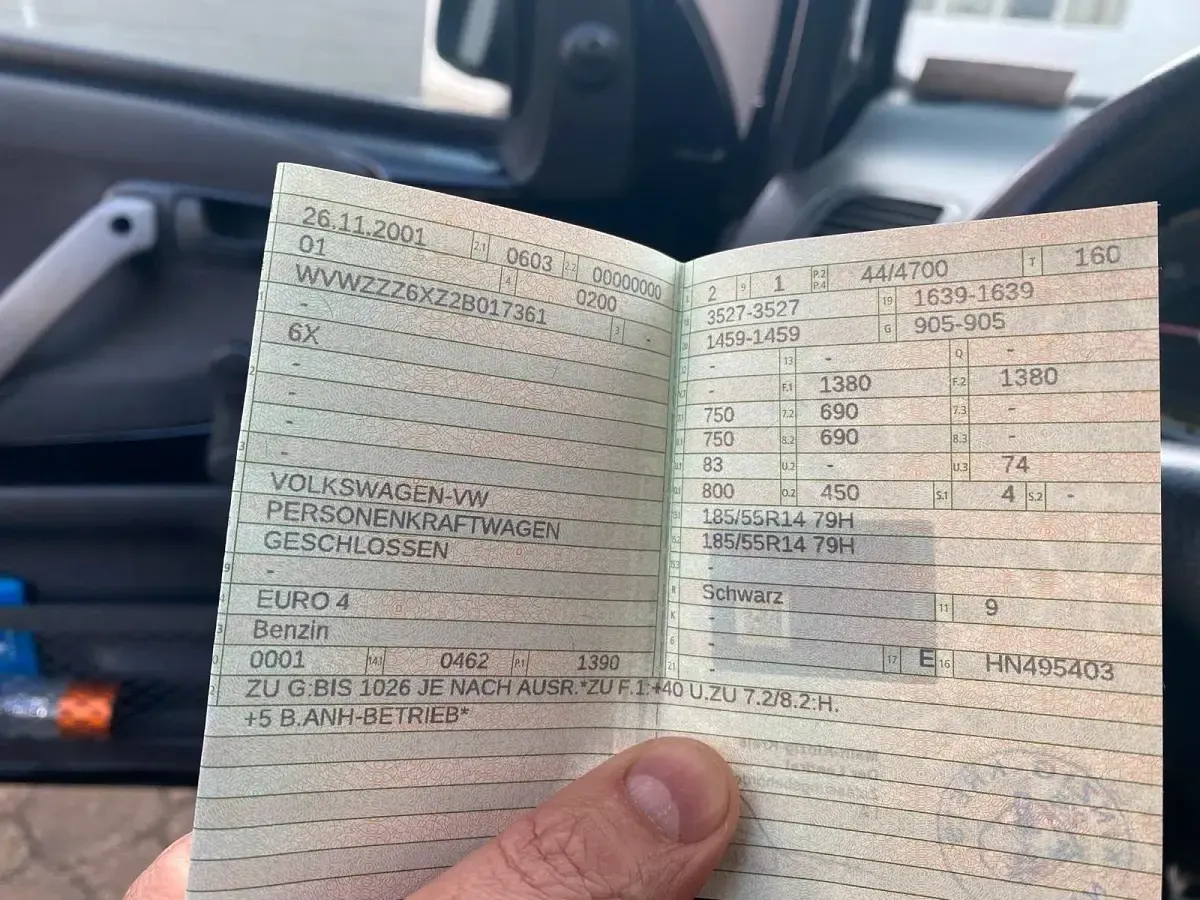 26.11.2001 2.1 0603 2.2 00000000
01 4 0200
WVWZZZ6XZ2B017361 3 -
-
6X
-
-
-
-
VOLKSWAGEN-VW
PERSONENKRAFTWAGEN
GESCHLOSSEN
-
EURO 4
Benzin
0001 14.1 0462 P.1 1390
2 9 1 P.2 P.4 44/4700 T 160
3527-3527 19 1639-1639
1459-1459 G 905-905
- 13 - Q -
- F.1 1380 F.2 1380
750 7.2 690 7.3 -
750 8.2 690 8.3 -
83 U.2 - U.3 74
800 O.2 450 S.1 4 S.2 -
185/55R14 79H
185/55R14 79H
-
R Schwarz 11 9
K -
6 - 17 E 16 HN495403
21 -
ZU G:BIS 1026 JE NACH AUSR.*ZU F.1:+40 U.ZU 7.2/8.2:H.
+5 B.ANH-BETRIEB*